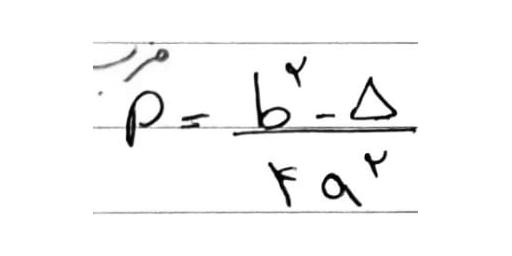 P = (b^۲ - Δ) / (۴a^۲)